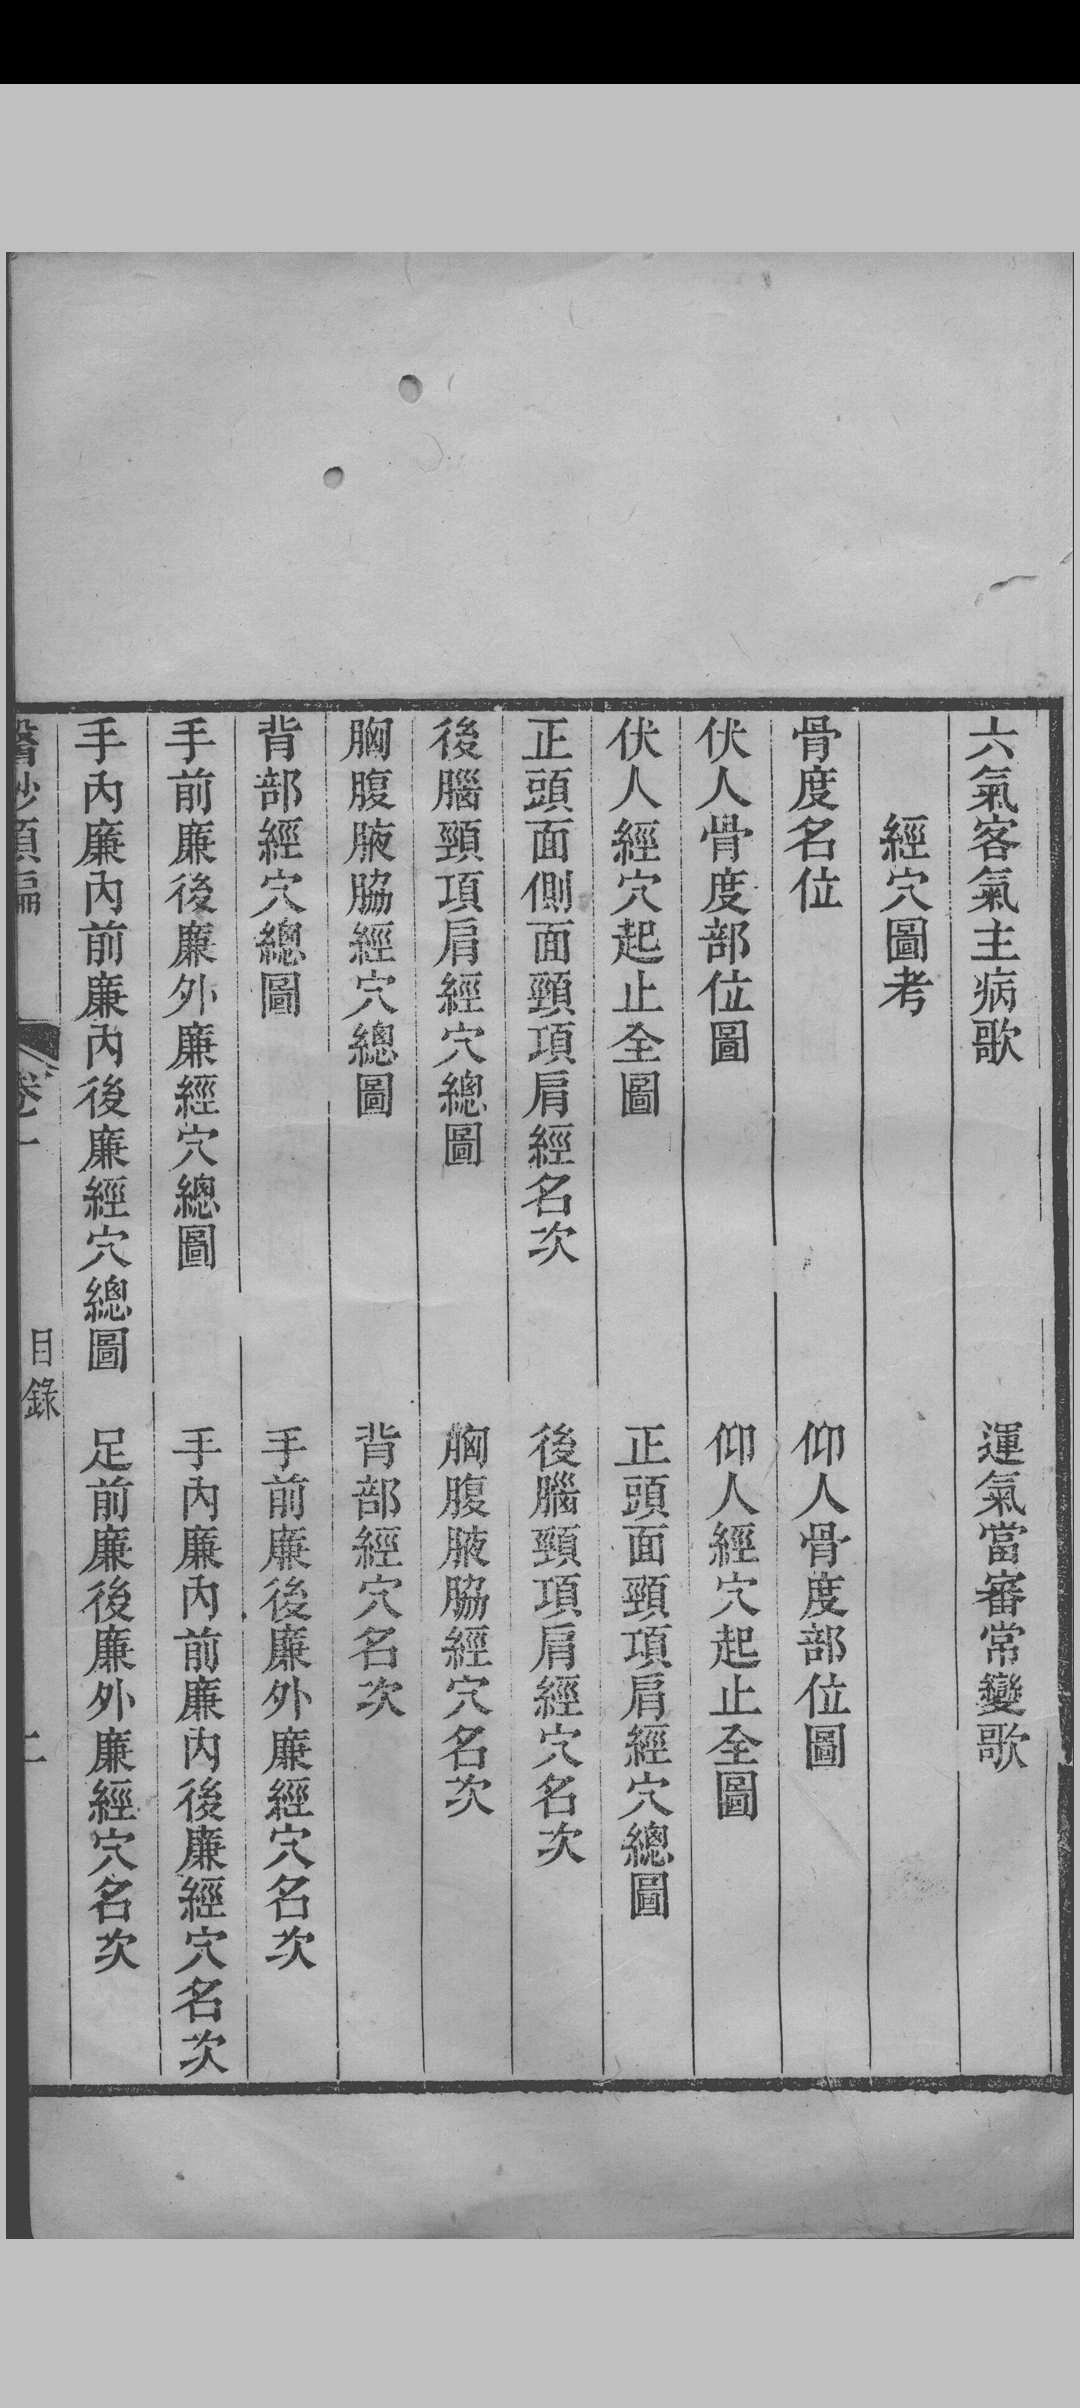 六氣客氣主病歌 運氣當審常變歌
經穴圖考
骨度名位 仰人骨度部位圖
伏人骨度部位圖 仰人經穴起止全圖
伏人經穴起止全圖 正頭面頸項肩經穴總圖
正頭面側面頸項肩經名次 後腦頸項肩經穴名次
後腦頸項肩經穴總圖 胸腹腋脇經穴名次
胸腹腋脇經穴總圖 背部經穴名次
背部經穴總圖 手前廉後廉外廉經穴名次
手前廉後廉外廉經穴總圖 手內廉內前廉內後廉經穴名次
手內廉內前廉內後廉經穴總圖 足前廉後廉外廉經穴名次
目錄